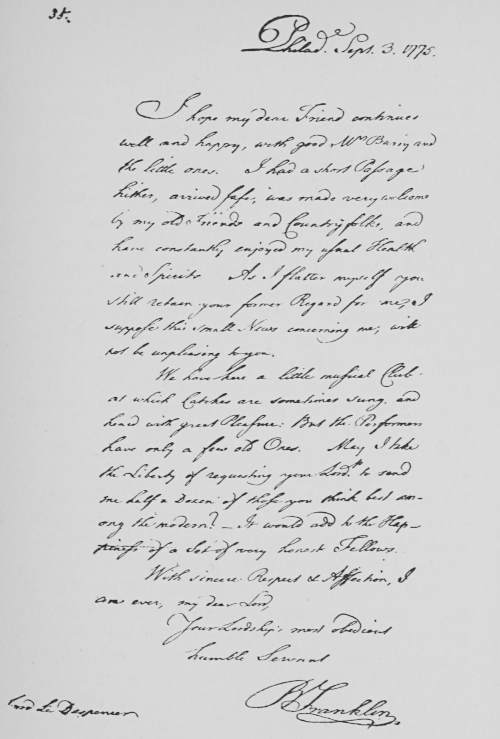 35.
Philad.ᵃ Sept. 3. 1775.
I hope my dear Friend continues
well and happy, with good Mʳˢ Barry and
the little ones. I had a short Passage
hither, arrived safe, was made very welcome
by my old Friends and Countryfolks, and
have constantly enjoyed my usual Health
and Spirits. As I flatter myself you
still retain your former Regard for me, I
suppose this small News concerning me, will
not be unpleasing to you.
We have here a little musical Club
at which Catches are sometimes sung, and
heard with great Pleasure: But the Performers
have only a few old Ones. May I take
the Liberty of requesting your Lordᵖ to send
me half a Dozen of those you think best am-
ong the modern? — It would add to the Hap-
piness of a Set of very honest Fellows.
With sincere Respect & Affection, I
am ever, my dear Lord,
Your Lordship's most obedient
humble Servant
B Franklin
Lord Le Despencer